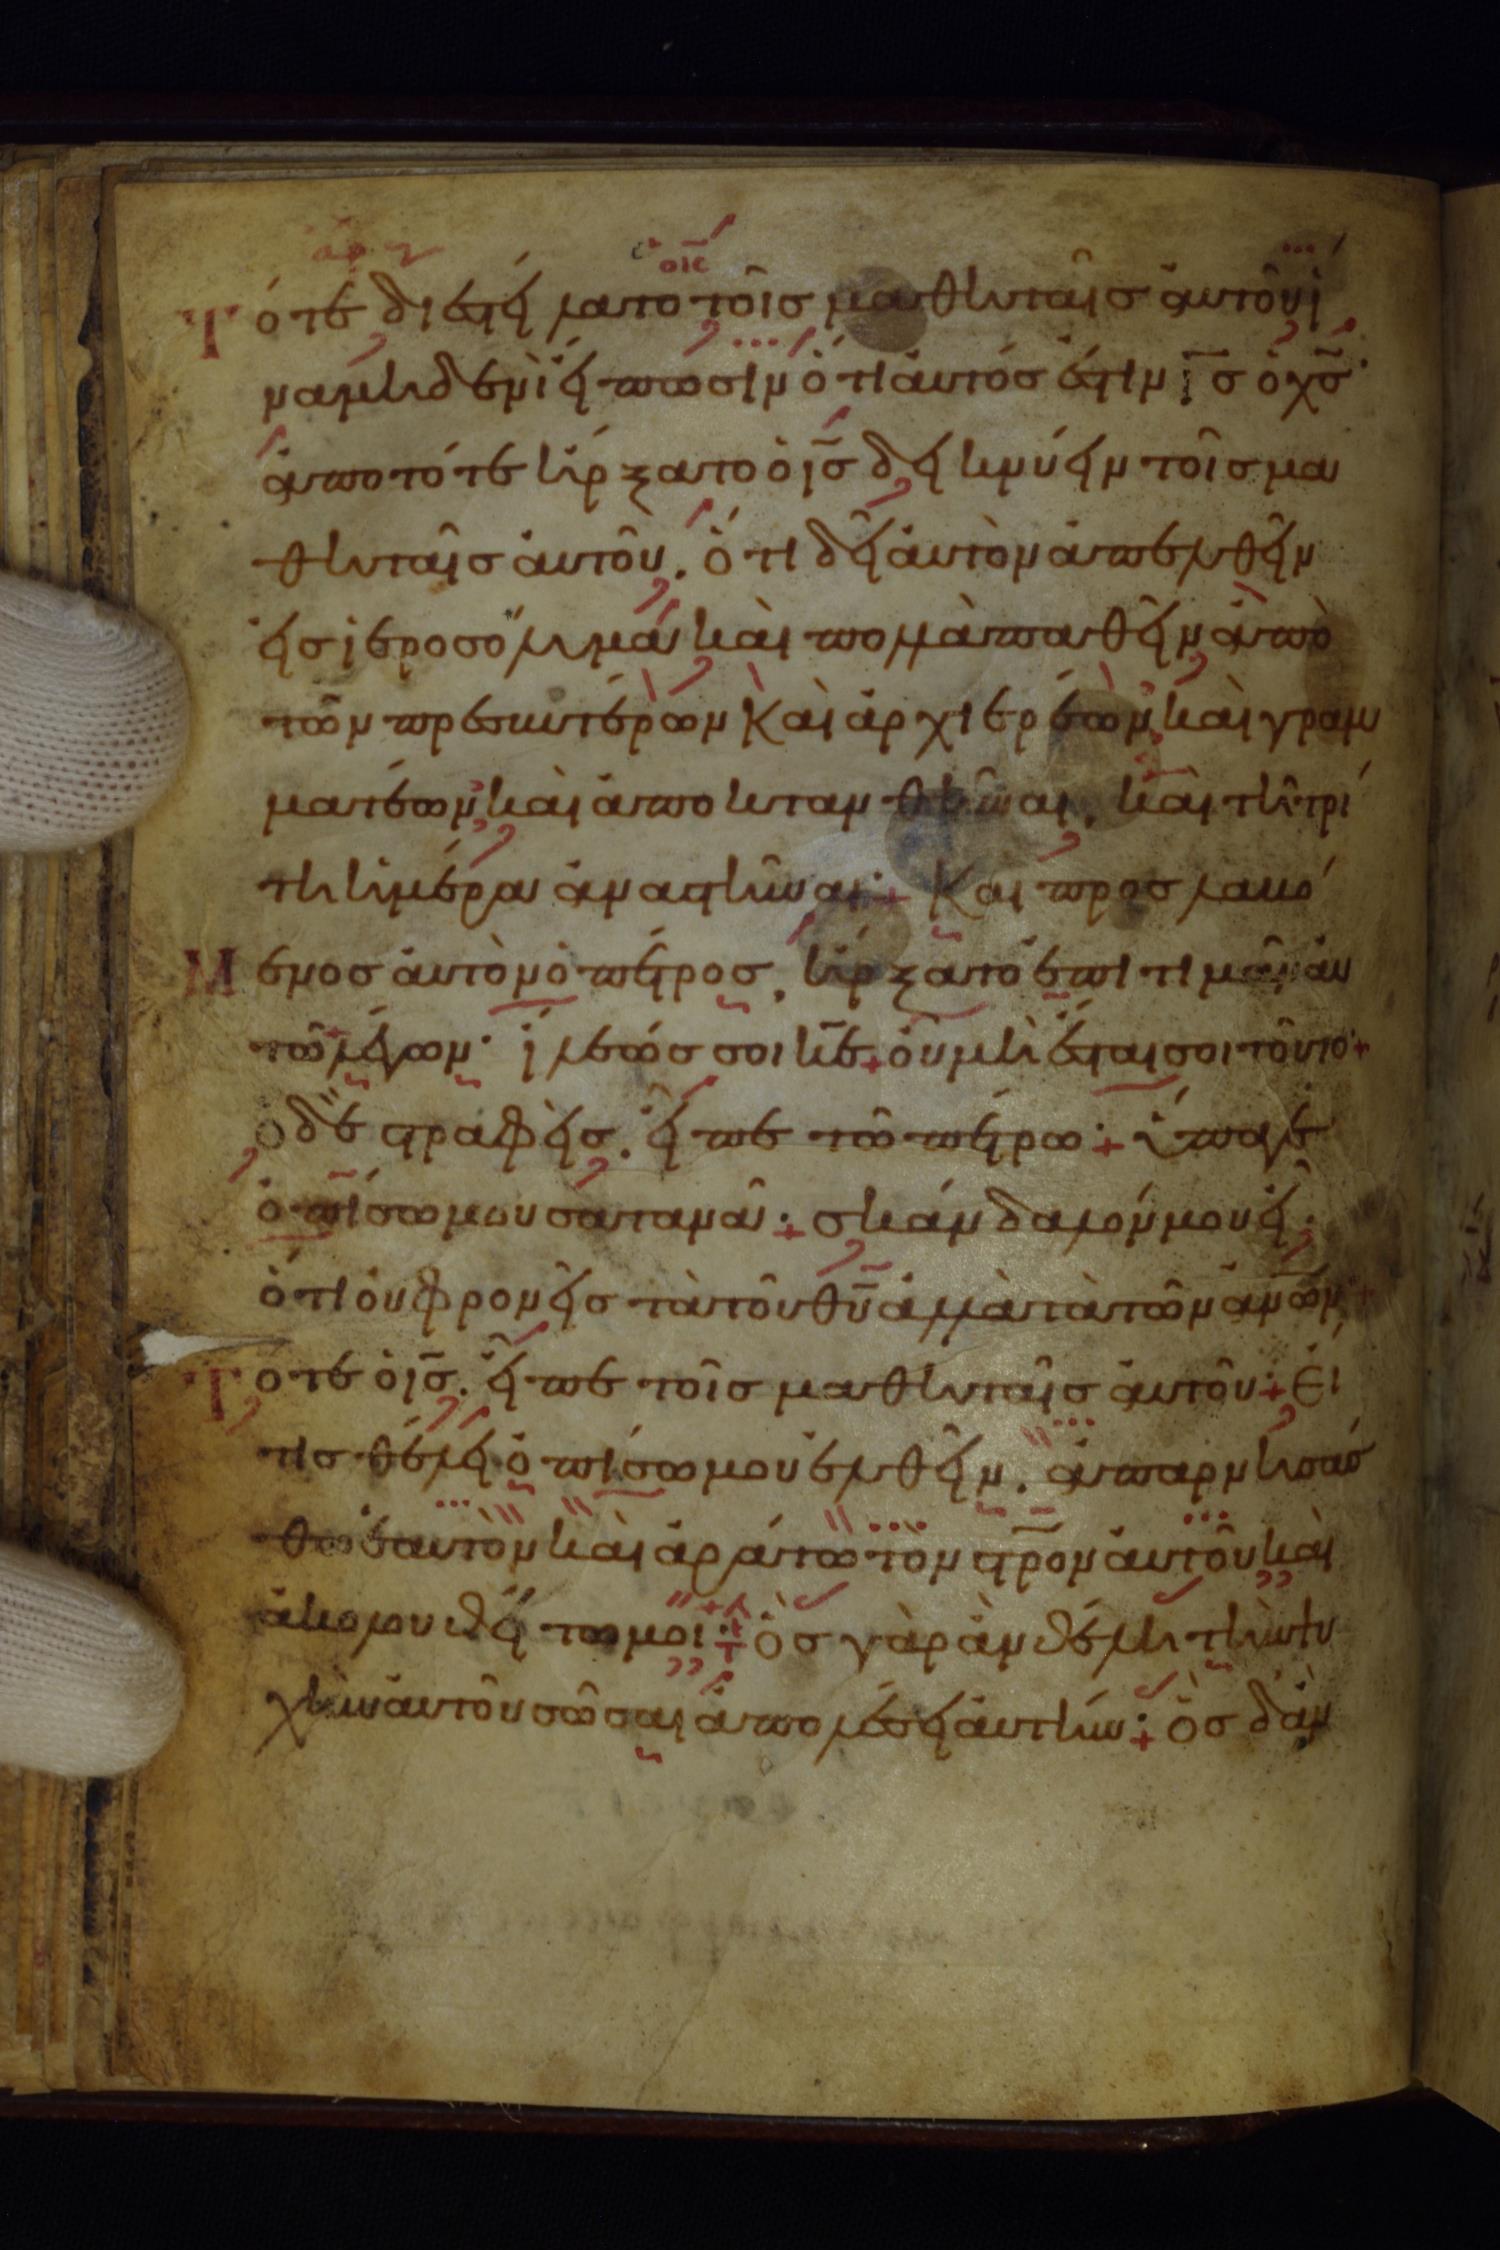 ὁ ι̅σ̅
Τότε διεστείλατο τοῖσ μαθηταῖσ ἀυτοῦ ἵ
να μηδενὶ ἔιπωσιν ὅτι ἀυτόσ ἐστιν ι̅σ̅ ὁ χ̅σ̅·
ἀπο τότε ἤρξατο ὁ ι̅σ̅ δεικνύειν τοῖσ μα
θηταῖσ ἀυτοῦ. ὅτι δεῖ ἀυτὸν ἀπελθεῖν
εἰσ ἱεροσόλυμα καὶ πολλὰ παθεῖν ἀπὸ
τῶν πρεσβυτέρων καὶ ἀρχιερέων καὶ γραμ
ματέων καὶ ἀποκτανθῆναι, καὶ τῆ τρί
τη ἡμέρα ἀναστῆναι· Και προσλαβό
Μενοσ ἀυτὸν ὁ πέτροσ, ἤρξατο ἐπιτιμᾶν ἀυ
τῶ λέγων· ἵλεώσ σοι κ̅ε̅ ὀυ μὴ ἔσται σοι τοῦτο·
ὁ δὲ στραφεὶσ. εἶπε τῶ πέτρω· ὕπαγε
ὀπίσω μου σατανᾶ· σκάνδαλόν μου εἶ·
ὅτι ὀυ φρονεῖσ τὰ τοῦ θ̅υ̅ ἀλλὰ τὰ τῶν α̅ν̅ω̅ν̅
Τότε ὁ ι̅σ̅. εἶπε τοῖσ μαθηταῖσ ἀυτοῦ· Εἴ
τισ θέλει ὀπίσω μου ἐλθεῖν. ἀπαρνησάσ
θω ἑαυτὸν καὶ ἀράτω τὸν σ̅ρ̅ο̅ν ἀυτοῦ καὶ
ἀκολουθείτω μοι· ὃσ γὰρ ἂν θέλη τὴν ψυ
χὴν ἀυτοῦ σῶσαι ἀπολέσει ἀυτήν· ὃσ δ' ἂν